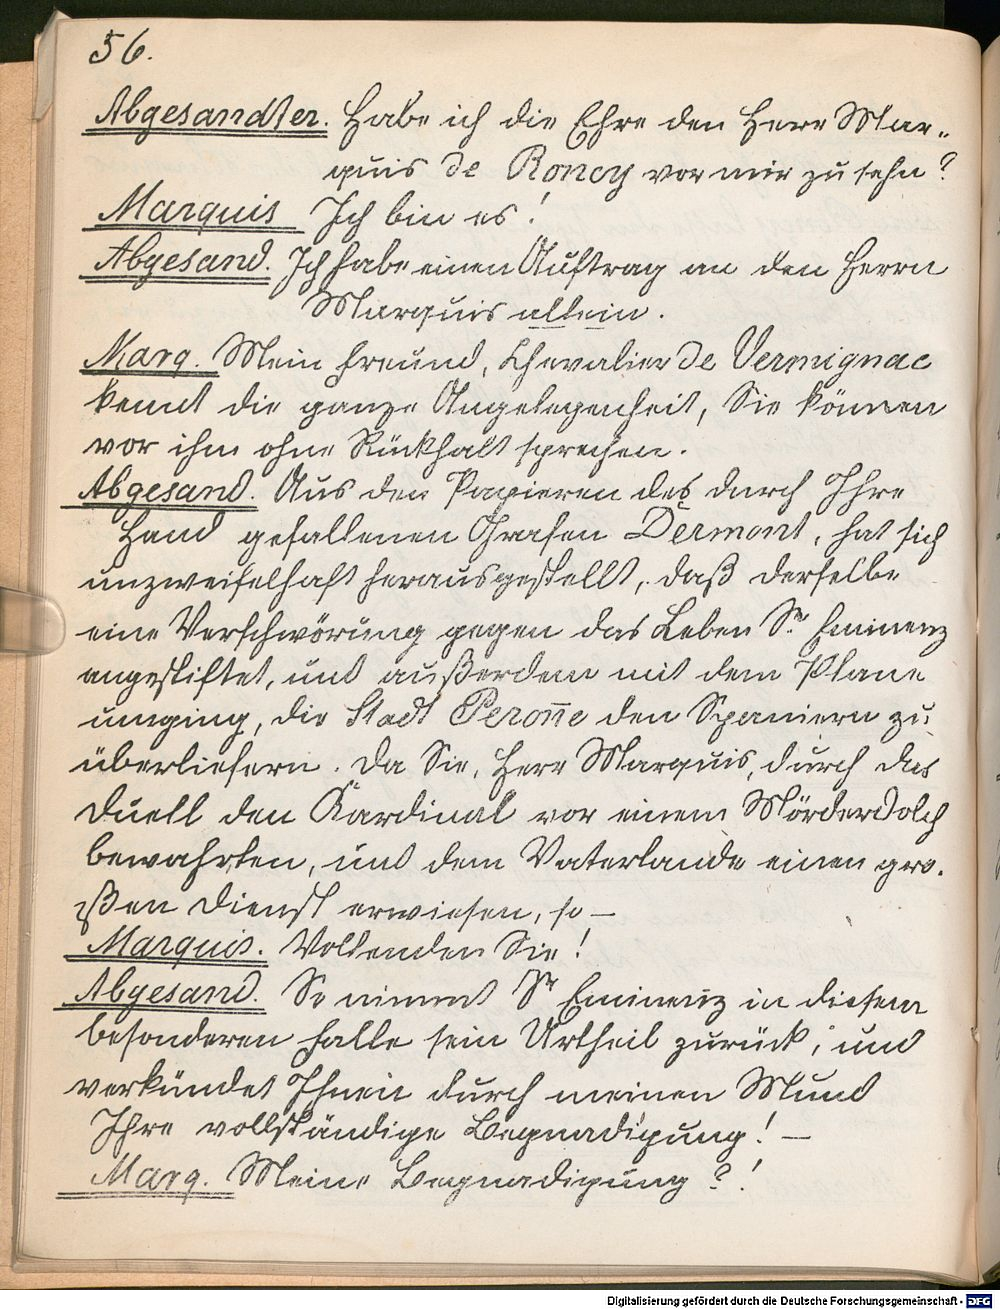 56.
Abgesandter. Habe ich die Ehre den Herr Mar-
quis de Roncy vor mir zu sehn?
Marquis Ich bin es!
Abgesand. Ich habe einen Auftrag an den Herrn
Marquis allein.
Marq. Mein Freund, Chevalier de Vermignac
kennt die ganze Angelegenheit, Sie können
vor ihm ohne Rückhalt sprechen.
Abgesand. Aus den Papieren des durch Ihre
Hand gefallenen Grafen Dermont, hat sich
unzweifelhaft herausgestellt, daß derselbe
eine Verschwörung gegen das Leben Sr Eminenz
angestiftet, und außerdem mit dem Plane
umging, die Stadt Peroñe den Spaniern zu
überliefern. Da Sie, Herr Marquis, durch das
Duell den Kardinal vor einem Mörderdolch
bewahrten, und dem Vaterlande einen gro-
ßen Dienst erwiesen, so —
Marquis. Vollenden Sie!
Abgesand. So nimmt Sr Eminenz in diesem
besonderen Falle sein Urtheil zurück, und
verkündet Ihnen durch meinen Mund
Ihre vollständige Begnadigung! —
Marq. Meine Begnadigung?!
Digitalisierung gefördert durch die Deutsche Forschungsgemeinschaft - DFG